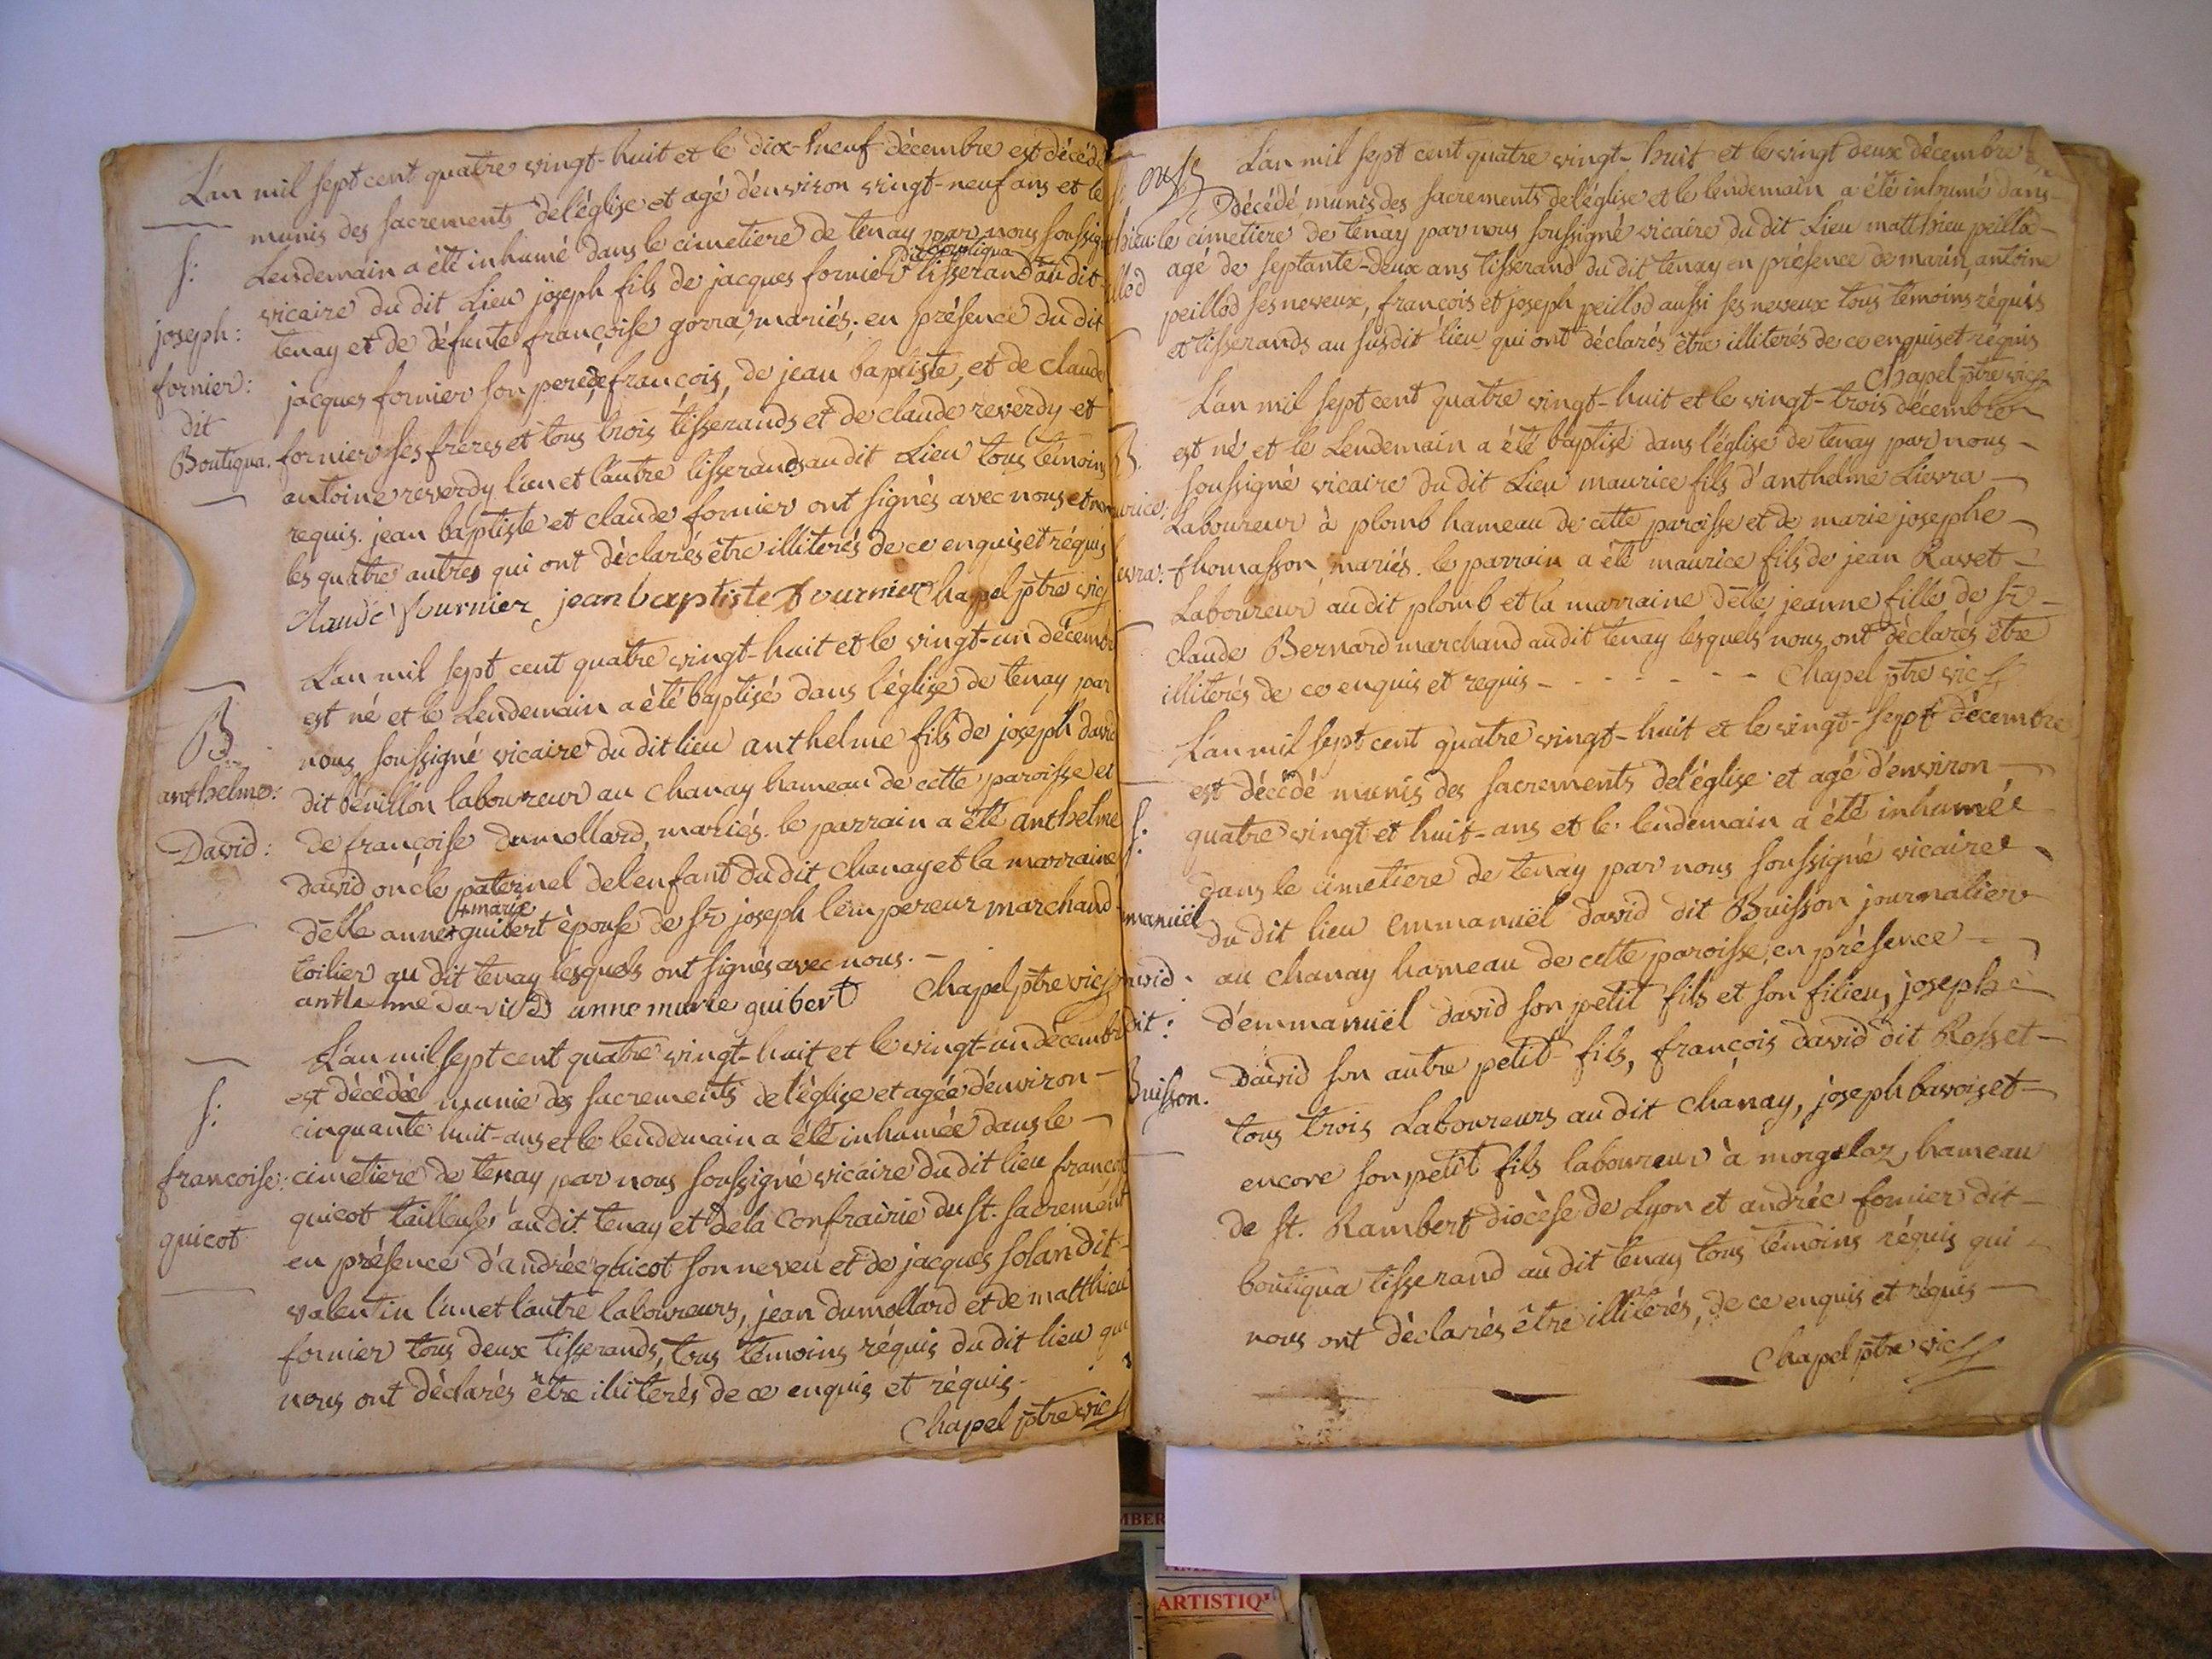 L'an mil sept cent quatre vingt-huit et le dix-neuf décembre est décédé
munis des sacrements de l'église et agé d'environ vingt-neuf ans et le
S: Lendemain a été inhumé dans le cimetiere de tenay par nous soussigné
dit boutiqua
vicaire du dit Lieu joseph fils de jacques fornier tisserand au dit-
joseph: tenay et de défunte françoise gorra, mariés; en présence du dit
fornier: jacques fornier son pere, de françois, de jean baptiste, et de claude
dit
Boutiqua. fornier ses freres et tous trois tisserands et de claude reverdy et
antoine reverdy l'un et l'autre tisserands au dit Lieu tous témoins
requis. jean baptiste et claude fornier ont signés avec nous et non
les quatre autres qui ont déclarés être illiterés de ce enquis et réquis
Claude fournier jean baptiste fournier Chapel ptre vic
L'an mil sept cent quatre vingt-huit et le vingt-un décembre
B est né et le Lendemain a été baptisé dans l'église de tenay par
nous soussigné vicaire du dit lieu anthelme fils de joseph david
anthelme: dit bénillon laboureur au Chanay hameau de cette paroisse et
David: de françoise dumollard, mariés. le parrain a été anthelme
david oncle paternel de l'enfant du dit Chanay et la marraine
+ marie
delle anne + guibert épouse de sr joseph l'empereur marchand
toilier au dit tenay lesquels ont signés avec nous. -
anthelme david anne marie guibert Chapel ptre vic
L'an mil sept cent quatre vingt-huit et le vingt-un décembre
S: est décédée munie des sacrements de l'église et agée d'environ -
cinquante huit-ans et le lendemain a été inhumée dans le -
francoise: cimetiere de tenay par nous soussigné vicaire du dit lieu françoise
quicot quicot tailleuse au dit tenay et de la Confrairie du st. sacrement
en présence d'andrée quicot son neveu et de jacques solan dit-
valentin l'un et l'autre laboureurs, jean dumollard et de matthieu
fornier tous deux tisserands, tous témoins réquis du dit lieu qui
nous ont déclarés être illiterés de ce enquis et réquis.
Chapel ptre vic
L'an mil sept cent quatre vingt-huit et le vingt deux décembre
décédé munis des sacrements de l'église et le lendemain a été inhumé dans-
le cimetiere de tenay par nous soussigné vicaire du dit Lieu matthieu peillod-
agé de septante-deux ans tisserand du dit tenay en présence de marin, antoine
peillod ses neveux, françois et joseph peillod aussi ses neveux tous témoins réquis
et tisserands au susdit lieu qui ont déclarés être illiterés de ce enquis et réquis
Chapel ptre vic
L'an mil sept cent quatre vingt-huit et le vingt-trois décembre
B. est né et le Lendemain a été baptisé dans l'église de tenay par nous -
soussigné vicaire du dit Lieu maurice fils d'anthelme Lievra -
Laboureur à plomb hameau de cette paroisse et de marie josephe -
thomasson, mariés. le parrain a été maurice fils de jean Ravet -
Laboureur au dit plomb et la marraine delle jeanne fille de sr -
claude Bernard marchand au dit tenay lesquels nous ont déclarés être
illiterés de ce enquis et requis - - - - - - - Chapel ptre vic
L'an mil sept cent quatre vingt-huit et le vingt-sept décembre
est décédé munis des sacrements de l'église et agé d'environ -
S: quatre vingt et huit-ans et le lendemain a été inhumé
dans le cimetiere de tenay par nous soussigné vicaire
manuël du dit lieu emmanuël david dit Buisson journalier
avid. au chanay hameau de cette paroisse, en présence -
dit: d'emmanuël david son petit fils et son filieu, joseph
Buisson. David son autre petit fils, françois david dit Rosset -
tous trois Laboureurs au dit chanay, joseph bavoiset -
encore son petit fils laboureur à morgelaz, hameau
de st. Rambert diocèse de Lyon et andrée fornier dit -
boutiqua tisserand au dit tenay tous témoins réquis qui
nous ont déclarés être illiterés, de ce enquis et réquis -
Chapel ptre vic
ARTISTIQ